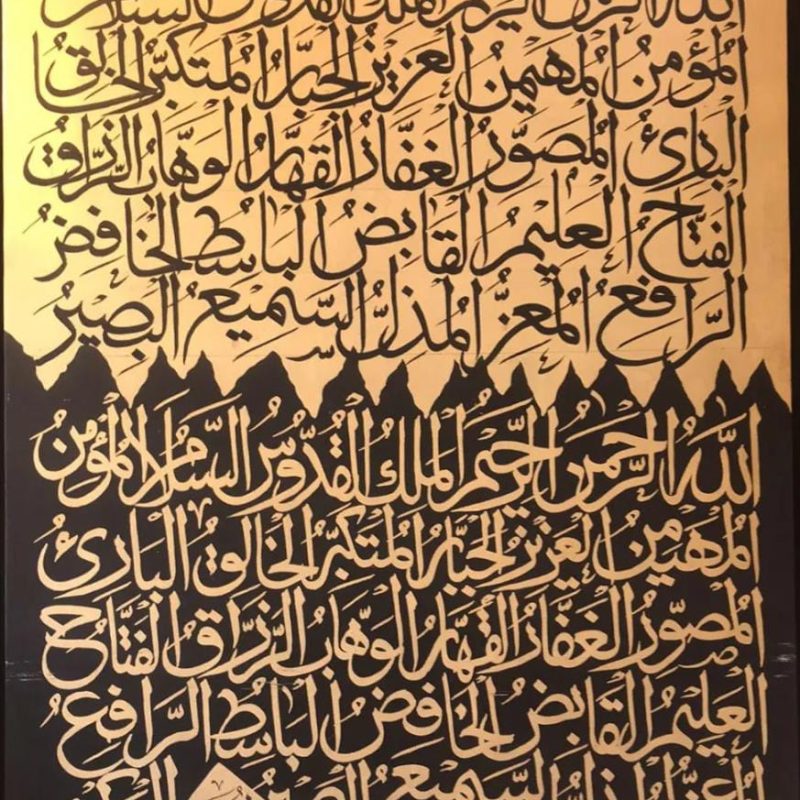 اللهُ الرَّحمٰن الرَّحيم الملك القدّوس السلام
المُؤمنُ المُهَيمنُ العزيزُ الجبّارُ المُتكبّرُ الخَالقُ
البَارئُ المُصَوِّرُ الغَفَّارُ القَهَّارُ الوَهَّابُ الرَّزَّاقُ
الفَتَّاحُ العَلِيمُ القَابِضُ البَاسِطُ الخَافِضُ
الرَّافِعُ المُعِزُّ المُذِلُّ السَّمِيعُ البَصِيرُ
اللهُ الرَّحمنُ الرَّحِيمُ المَلكُ القُدُّوسُ السَّلامُ المُؤمنُ
المُهَيمِنُ العَزِيزُ الجَبَّارُ المُتكبّرُ الخَالِقُ البَارئُ
المُصَوِّرُ الغَفَّارُ القَهَّارُ الوَهَّابُ الرَّزَّاقُ الفَتَّاحُ
العَلِيمُ القَابِضُ الخَافِضُ البَاسِطُ الرَّافِعُ
المُعِزُّ المُذِلُّ السَّمِيعُ البَصِيرُ